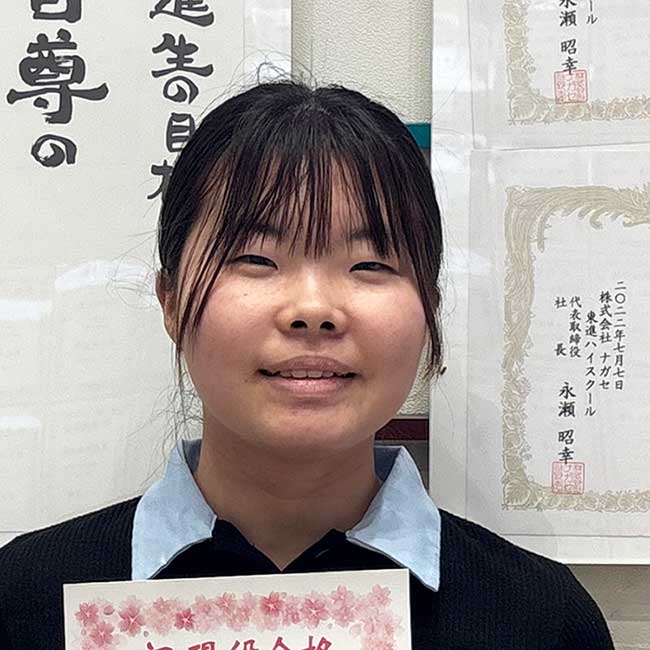 ール
永瀬 昭幸
二〇二二年七月七日
株式会社 ナガセ
東進ハイスクール
代表取締役
社長 永瀬 昭幸
進生の目
尊の
現役合格